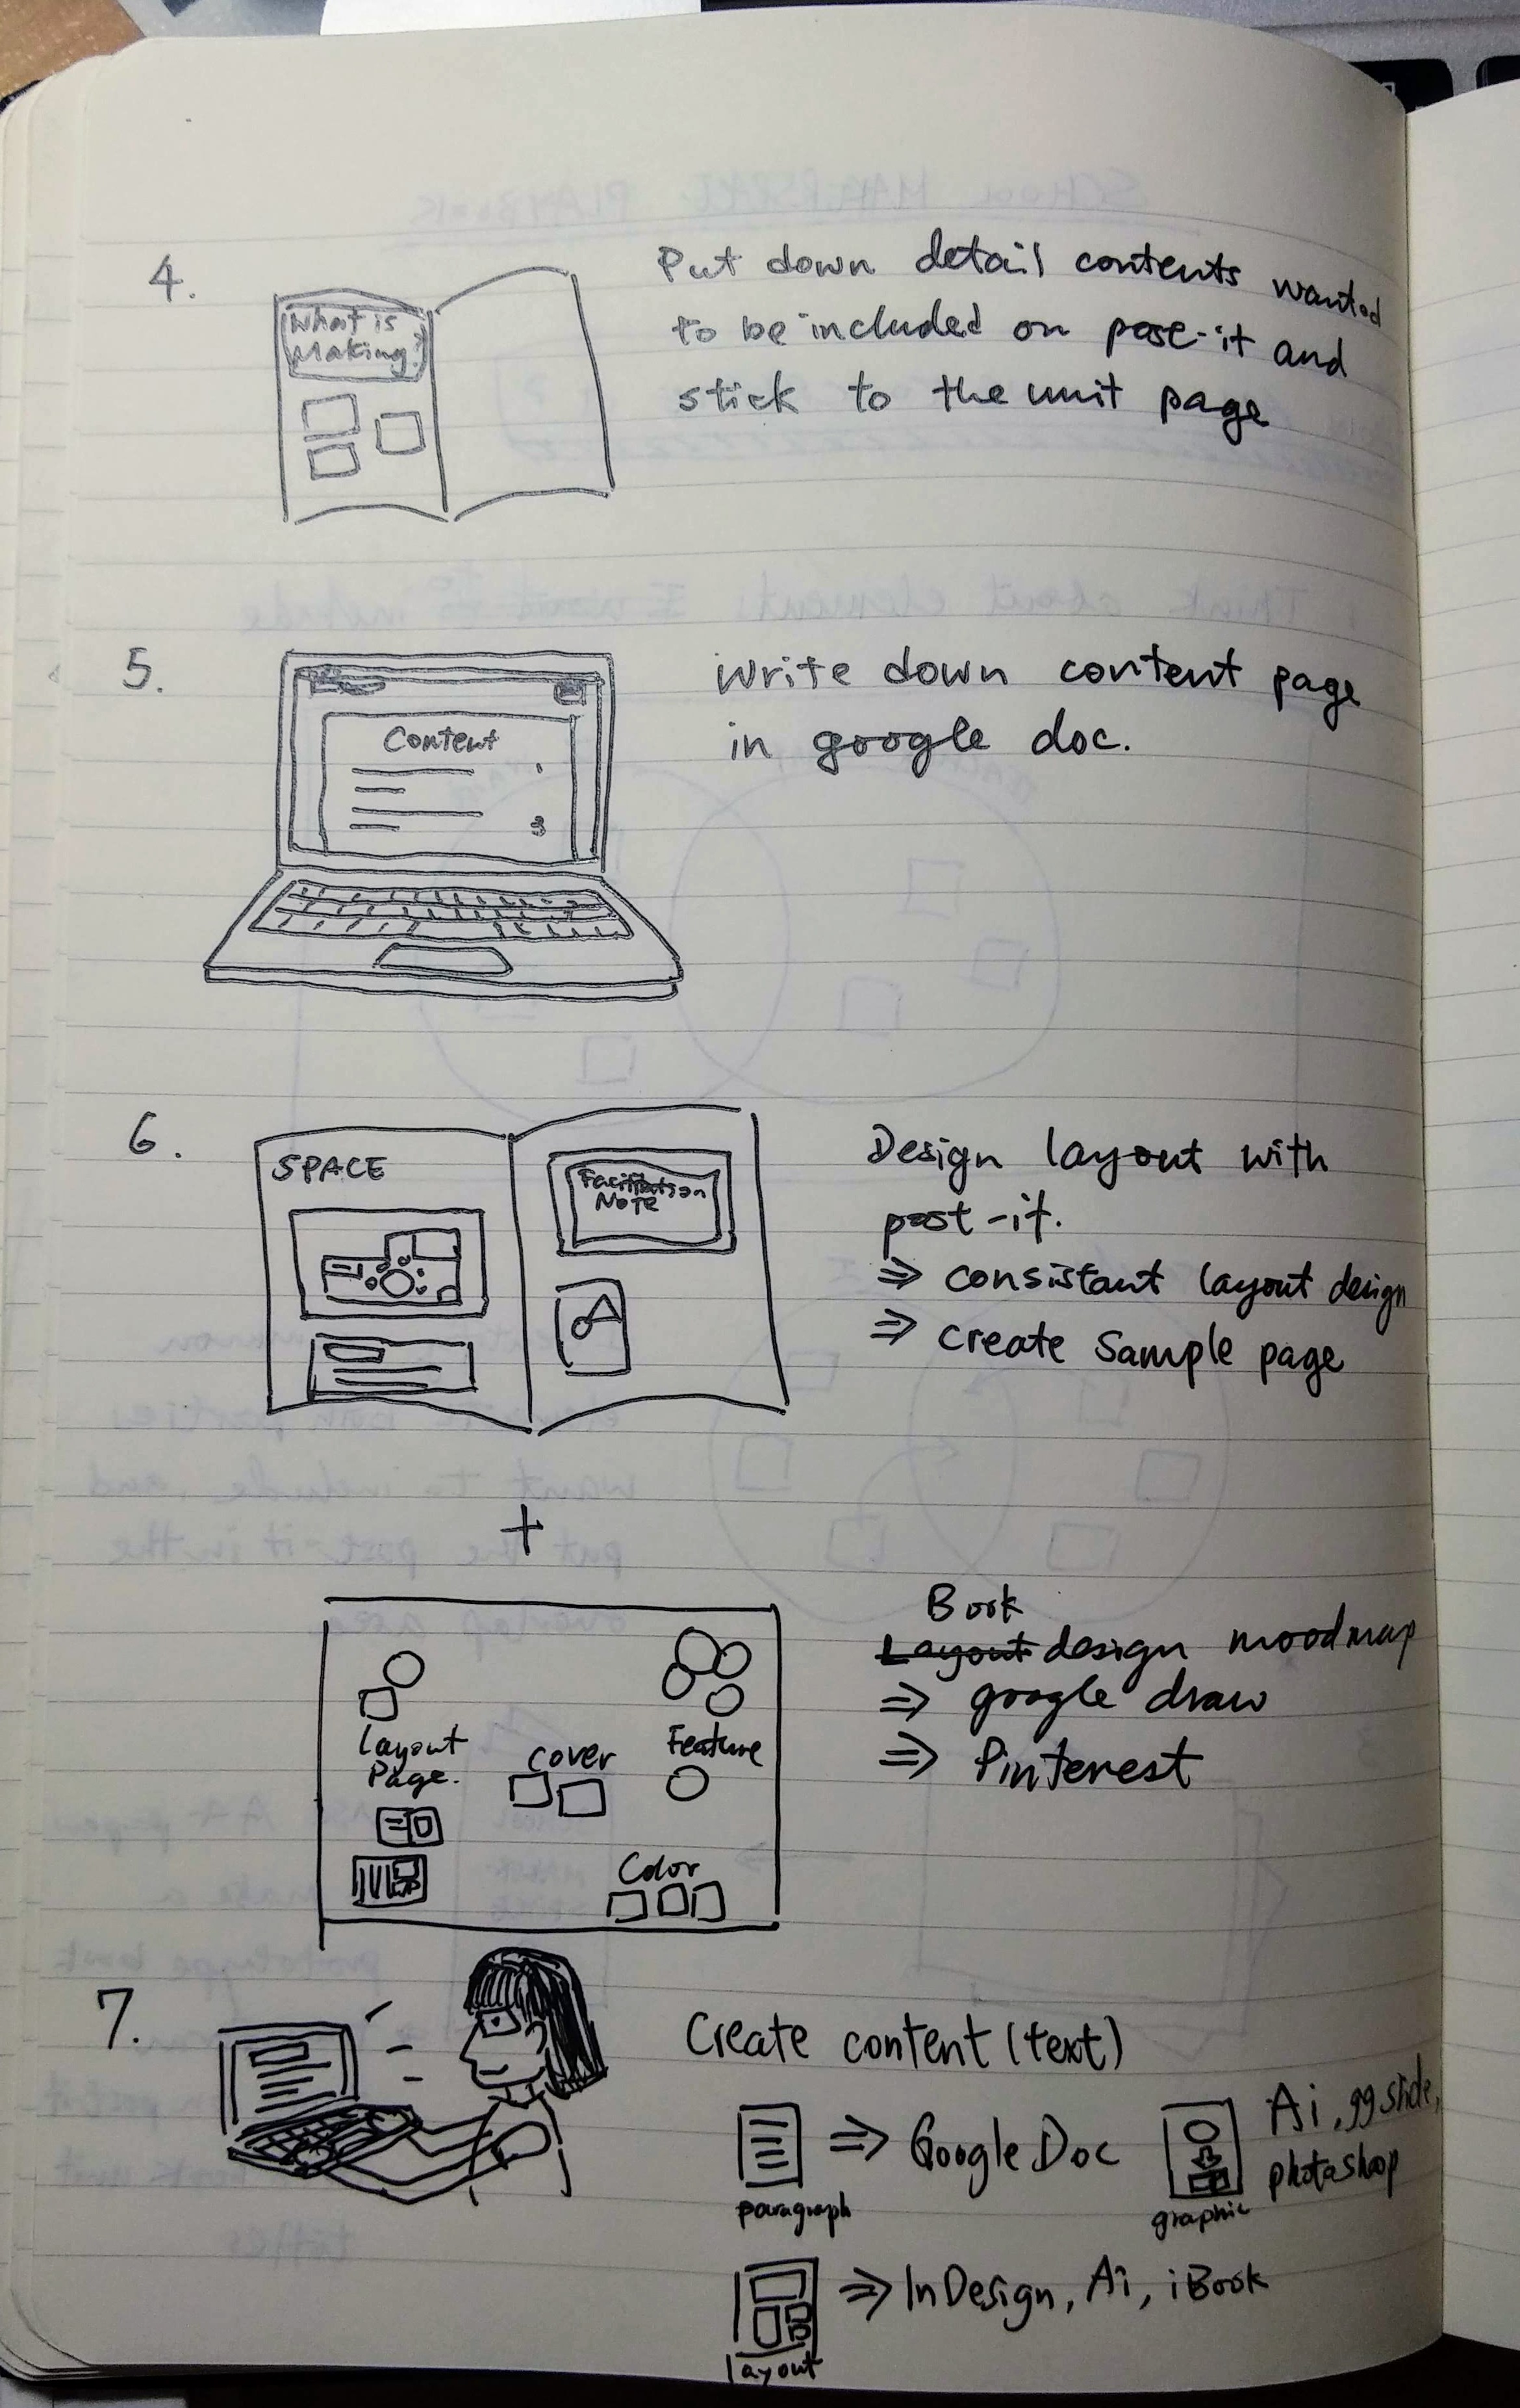 4.
What is
Making?
Put down detail contents wanted
to be included on post-it and
stick to the unit page
5.
Content
1
3
Write down content page
in google doc.
6.
SPACE
Facilitation
NOTE
Design layout with
post-it.
⇒ consistant layout design
⇒ create sample page
+
Layout
Page.
cover
Feature
Color
Book
Layout design moodmap
⇒ google draw
⇒ Pinterest
7.
Create content (text)
paragraph
⇒ Google Doc
graphic
Ai, gg slide,
photashop
layout
⇒ InDesign, Ai, iBook